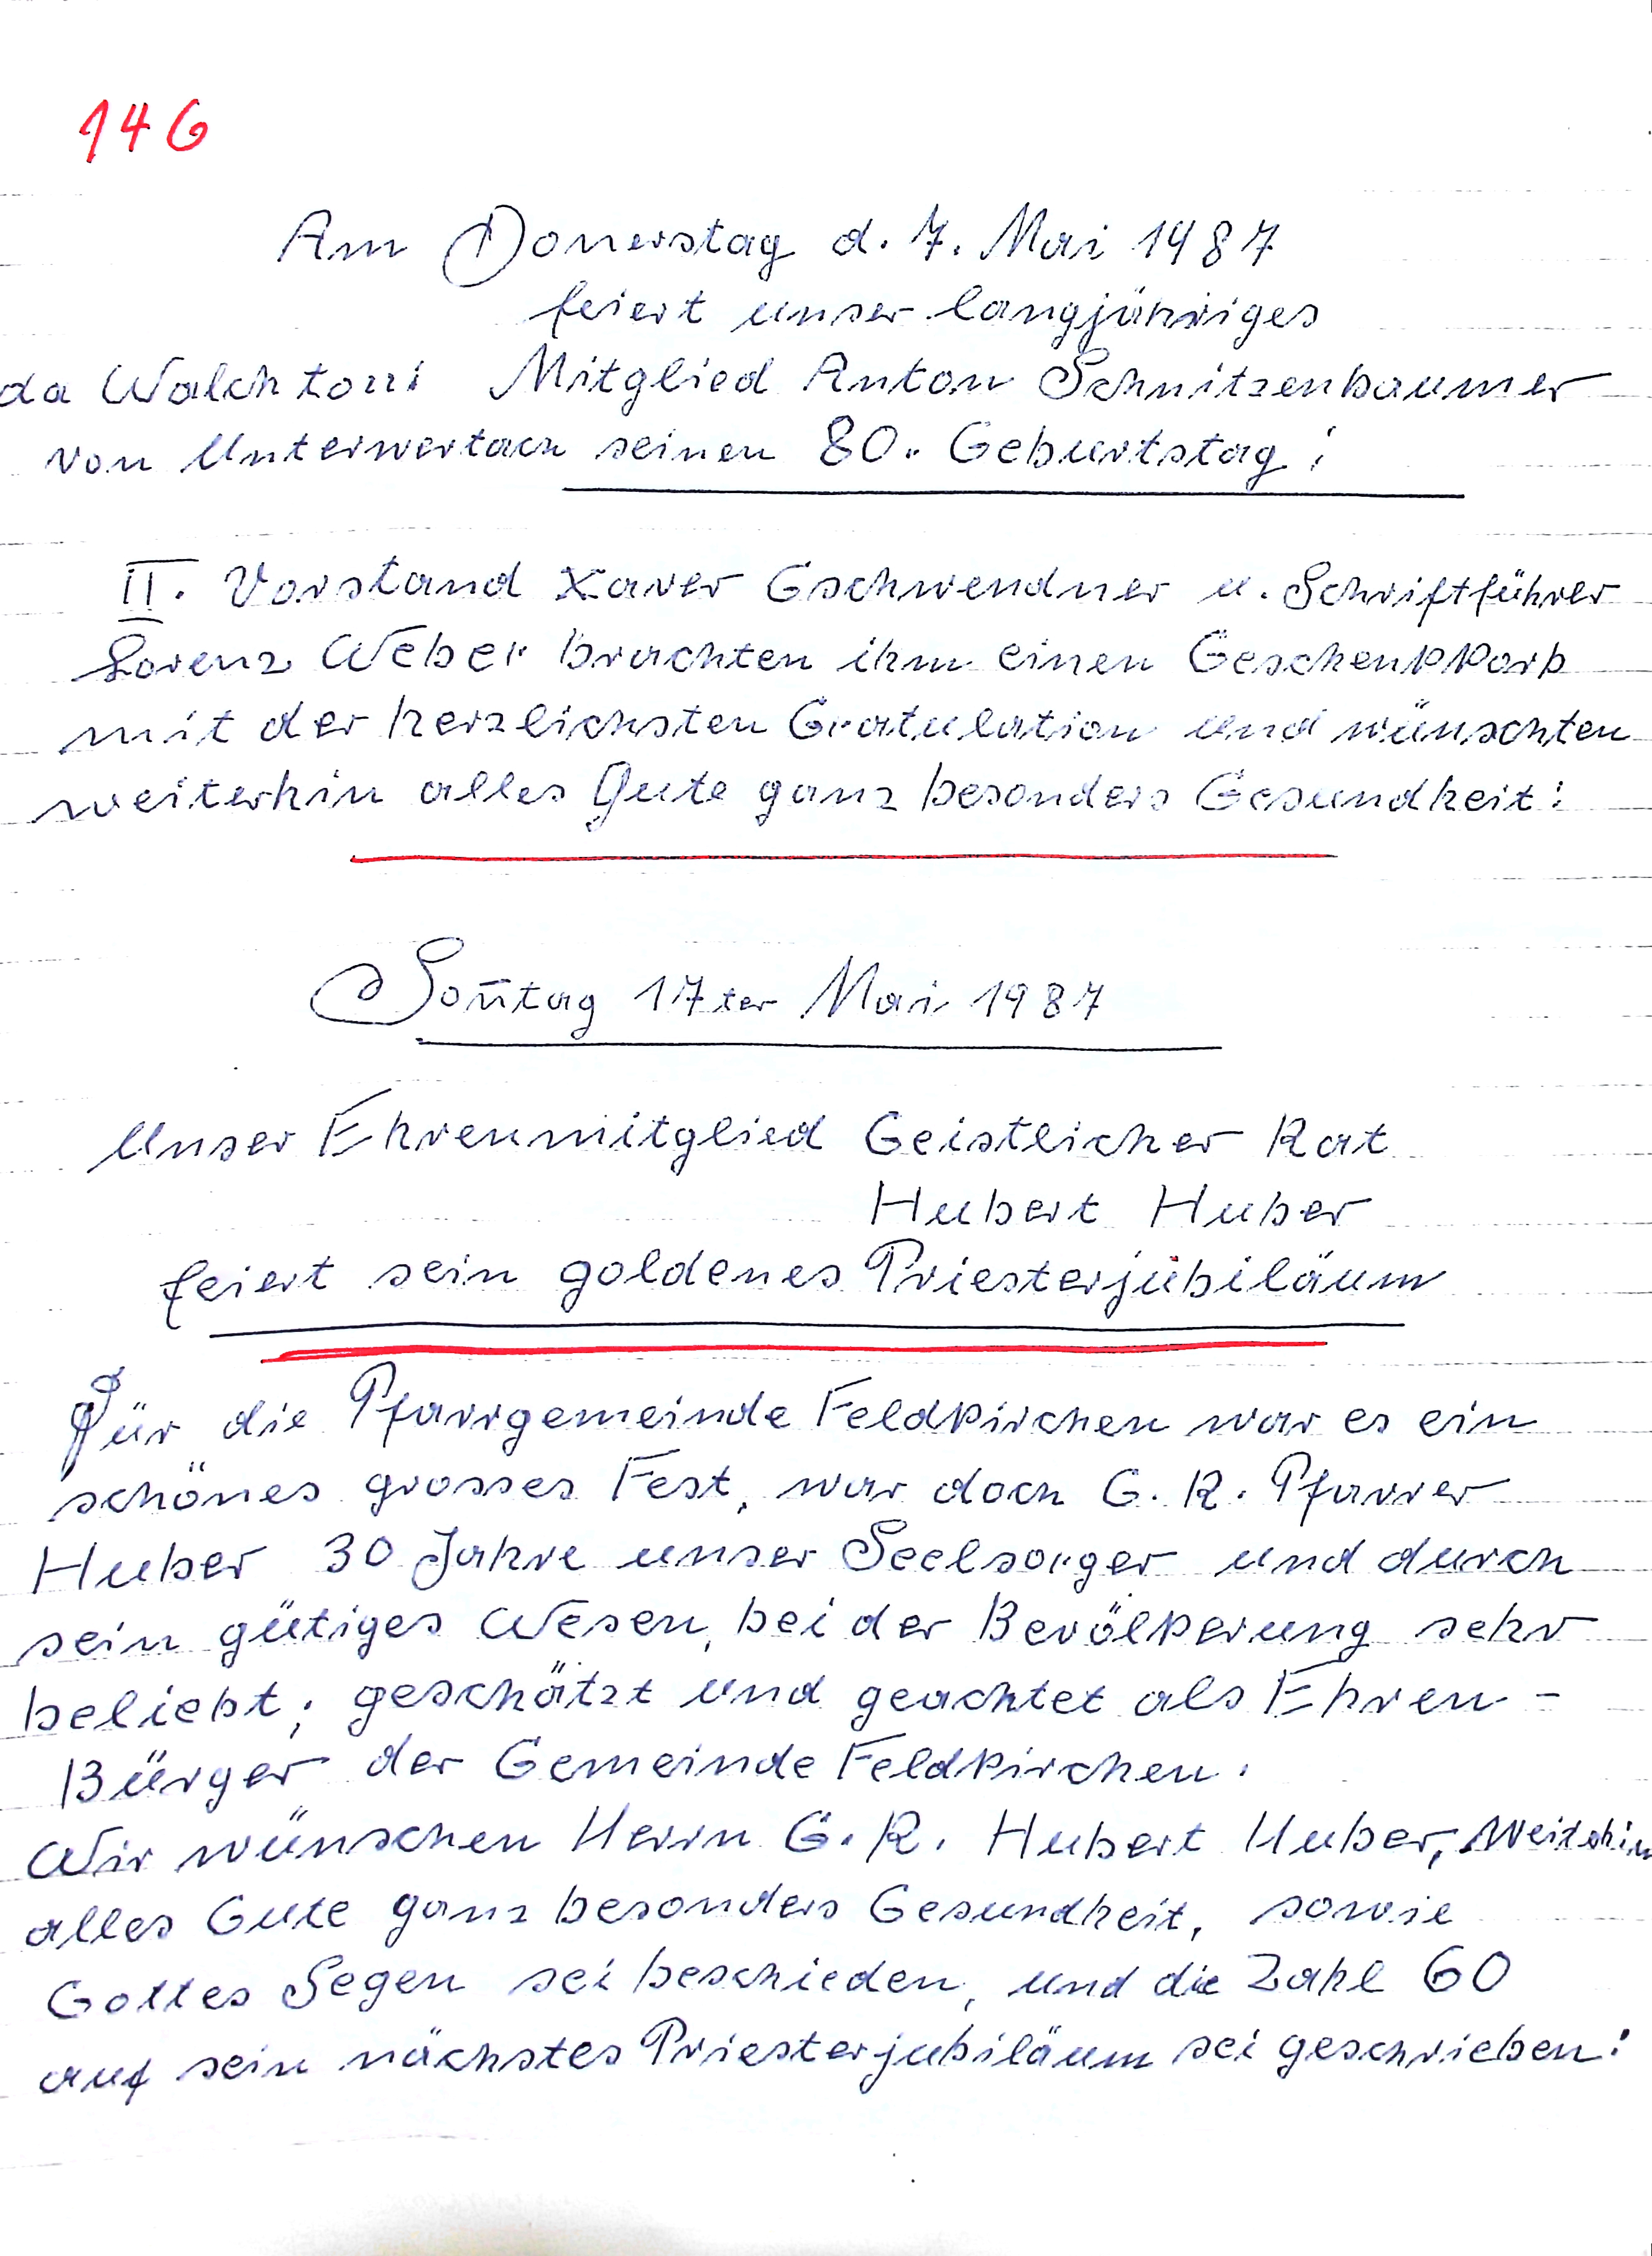 146
Am Donerstag d. 7. Mai 1987
feiert unser langjähriges
da Walch toni Mitglied Anton Schnitzenbaumer
von Unterwertach seinen 80. Geburtstag!
II. Vorstand Xaver Gschwendner u. Schriftführer
Lorenz Weber brachten ihm einen Geschenkkorb
mit der herzlichsten Gratulation und wünschten
weiterhin alles Gute ganz besonders Gesundheit:
Son̄tag 17ter Mai 1987
Unser Ehrenmitglied Geistlicher Rat
Hubert Huber
feiert sein goldenes Priesterjubiläum
Für die Pfarrgemeinde Feldkirchen war es ein
schönes grosses Fest, war doch G. R. Pfarrer
Huber 30 Jahre unser Seelsorger und durch
sein gütiges Wesen, bei der Bevölkerung sehr
beliebt; geschätzt und geachtet als Ehren-
Bürger der Gemeinde Feldkirchen.
Wir wünschen Herrn G. R. Hubert Huber, Weiterhin
alles Gute ganz besonders Gesundheit, sowie
Gottes Segen sei beschieden, und die Zahl 60
auf sein nächstes Priesterjubiläum sei geschrieben: